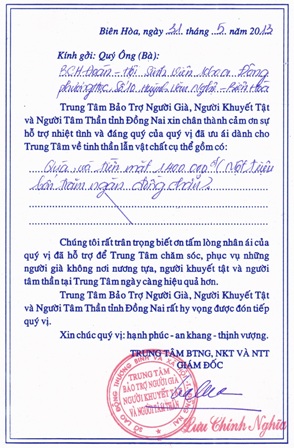 Biên Hòa, ngày 31 tháng 5 năm 2013
Kính gởi: Quý Ông (Bà):
BCH Đoàn - Hội Sinh viên Khoa Đông
phương học Số 10 Huỳnh Văn Nghệ - Biên Hòa
Trung Tâm Bảo Trợ Người Già, Người Khuyết Tật
và Người Tâm Thần tỉnh Đồng Nai xin chân thành cảm ơn sự
hỗ trợ nhiệt tình và đáng quý của quý vị đã ưu ái dành cho
Trung Tâm về tinh thần lẫn vật chất cụ thể gồm có:
Quà và tiền mặt 1.400.000đ (Một triệu
bốn trăm ngàn đồng chẵn)
Chúng tôi rất trân trọng biết ơn tấm lòng nhân ái của
quý vị đã hỗ trợ để Trung Tâm chăm sóc, phục vụ những
người già không nơi nương tựa, người khuyết tật và người
tâm thần tại Trung Tâm ngày càng hiệu quả hơn.
Trung Tâm Bảo Trợ Người Già, Người Khuyết Tật
và Người Tâm Thần tỉnh Đồng Nai rất hy vọng được đón tiếp
quý vị.
Xin chúc quý vị: hạnh phúc - an khang - thịnh vượng.
TRUNG TÂM BTNG, NKT VÀ NTT
GIÁM ĐỐC
TRUNG TÂM
BẢO TRỢ NGƯỜI GIÀ
NGƯỜI KHUYẾT TẬT
VÀ NGƯỜI TÂM THẦN
Lưu Chính Nghĩa